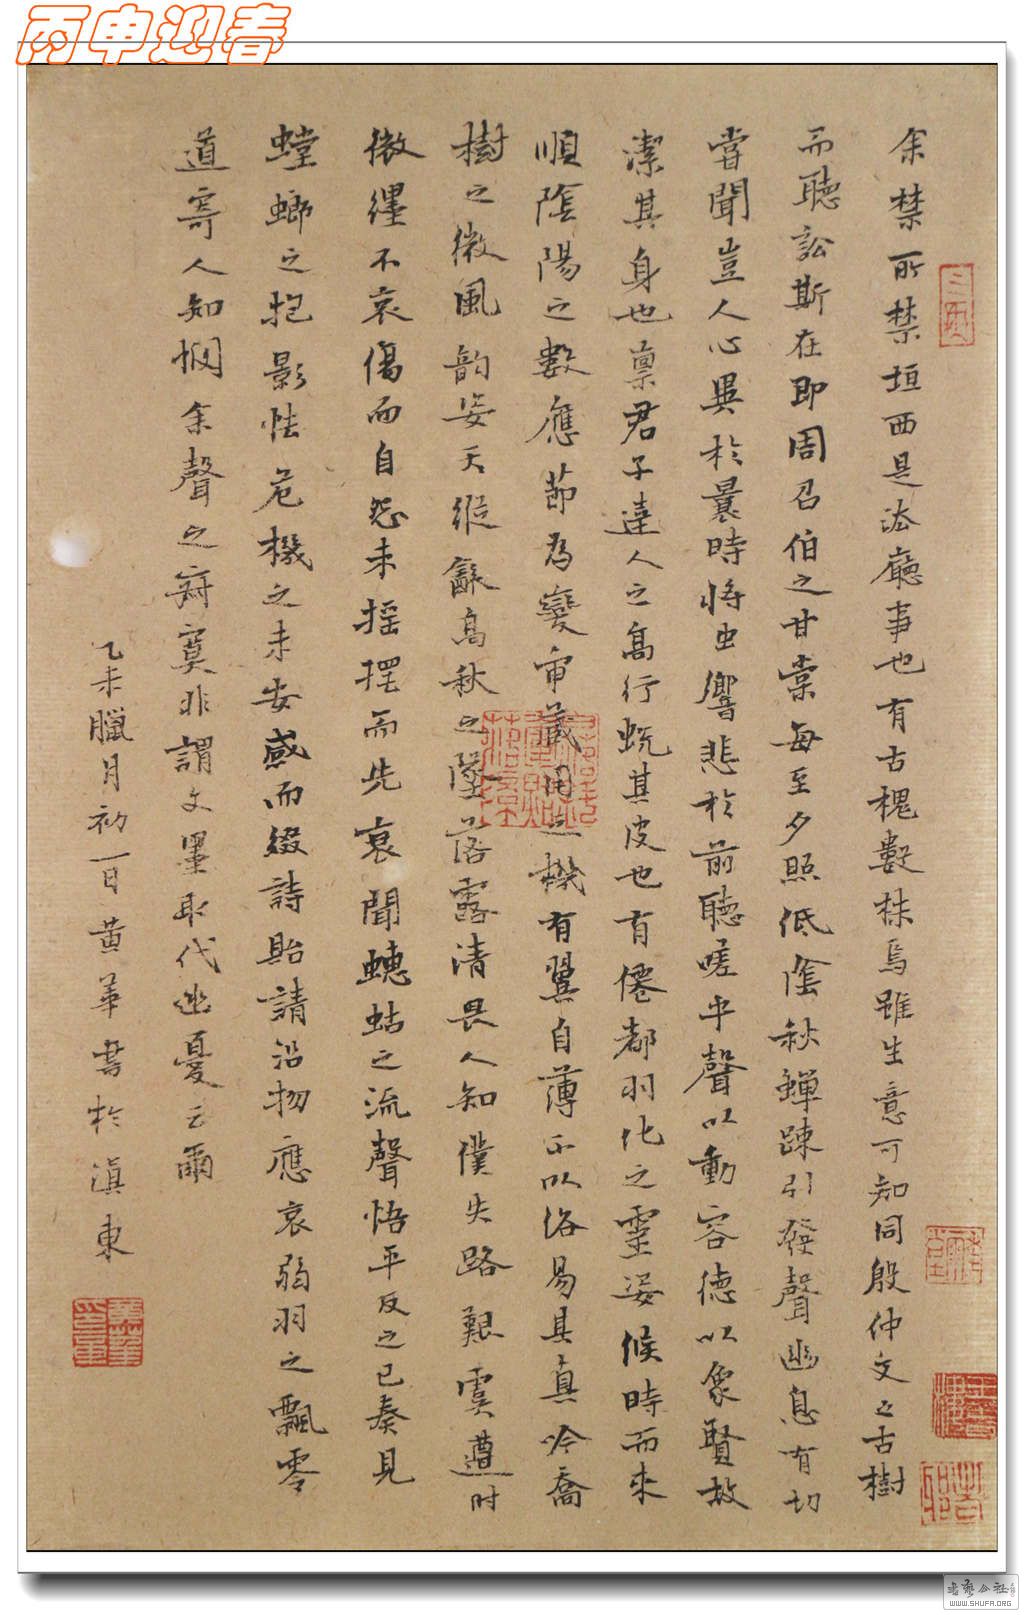 丙申迎春
余禁所禁垣西是法廳事也有古槐數株焉雖生意可知同殷仲文之古樹
而聽訟斯在即周召伯之甘棠每至夕照低陰秋蟬踈引發聲幽息有切
嘗聞豈人心異於曩時將虫響悲於前聽嗟乎聲以動容德以象賢故
潔其身也稟君子達人之高行蛻其皮也有僊都羽化之靈姿候時而來
順陰陽之數應節為變審藏用之機有翼自薄不以俗易其真吟喬
樹之微風韵姿天縱飲高秋之墜落露清畏人知僕失路艱虞遭时
徽纆不哀傷而自怨未摇擺而先衰聞蟪蛄之流聲悟平反之已奏見
螳螂之抱影怯危機之未安感而綴詩貽請沿物應哀弱羽之飄零
道寄人知憫余聲之寂寞非謂文墨取代幽憂云爾
乙未臘月初一日黄華書於滇東
書藝公社
WWW.SHUFA.ORG